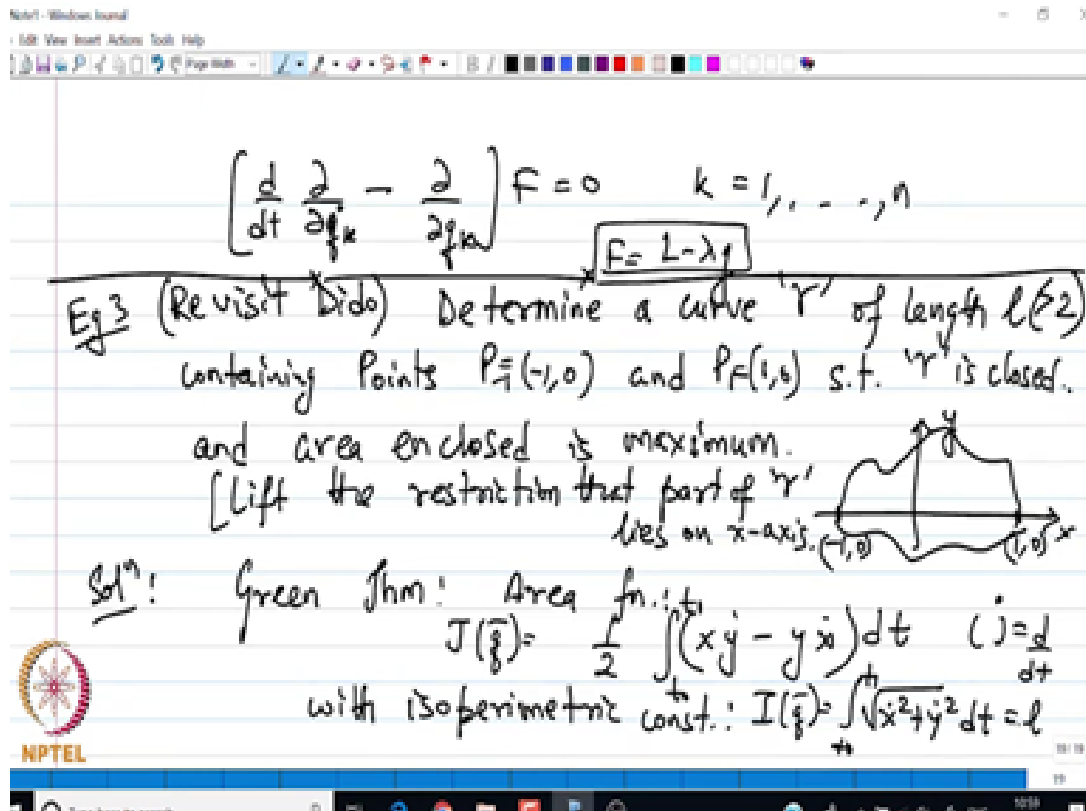 Note1 - Windows Journal
Edit View Insert Actions Tools Help
Page Width
[d/dt ∂/∂q̇_k - ∂/∂q_k] F = 0 k = 1, . . . , n
F = L - λg
Eg 3 (Revisit Dido) Determine a curve 'r' of length l(>2)
containing Points P_I=(-1,0) and P_F(1,0) s.t. 'r' is closed.
and area enclosed is maximum.
[Lift the restriction that part of 'r'
lies on x-axis.
y
x
(-1,0) (1,0)
Solⁿ: Green Thm: Area fn.:
J(q̄) = 1/2 ∫_{t0}^{t1} (xẏ - yẋ) dt (˙) = d/dt
with isoperimetric const.: I(q̄) = ∫_{t0}^{t1} √(ẋ²+ẏ²) dt = l
NPTEL
19/19
19
10:59